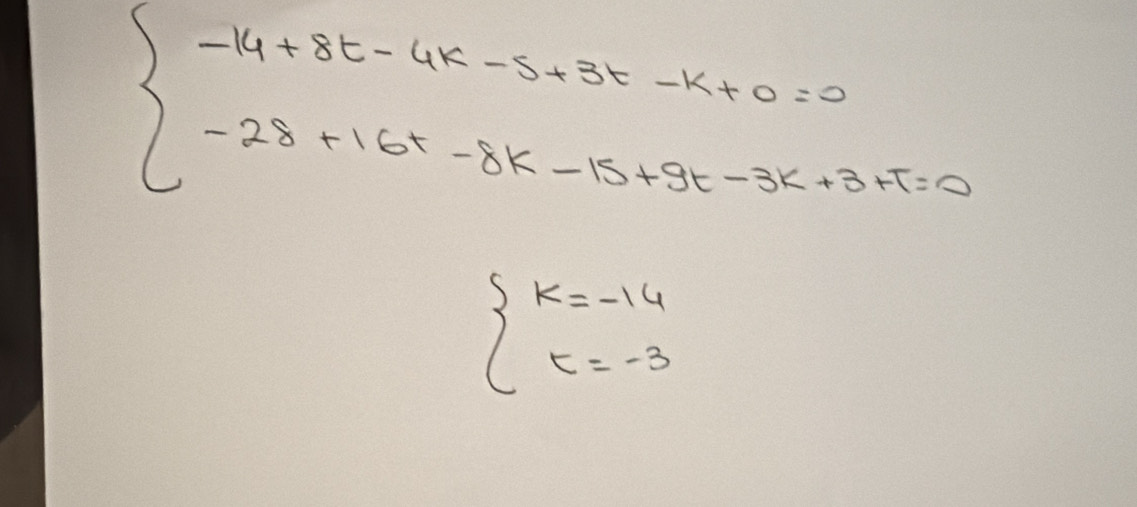 -14+8t-4K-5+3t-K+0=0
-28+16t-8K-15+9t-3K+3+T=0
K=-14
t=-3